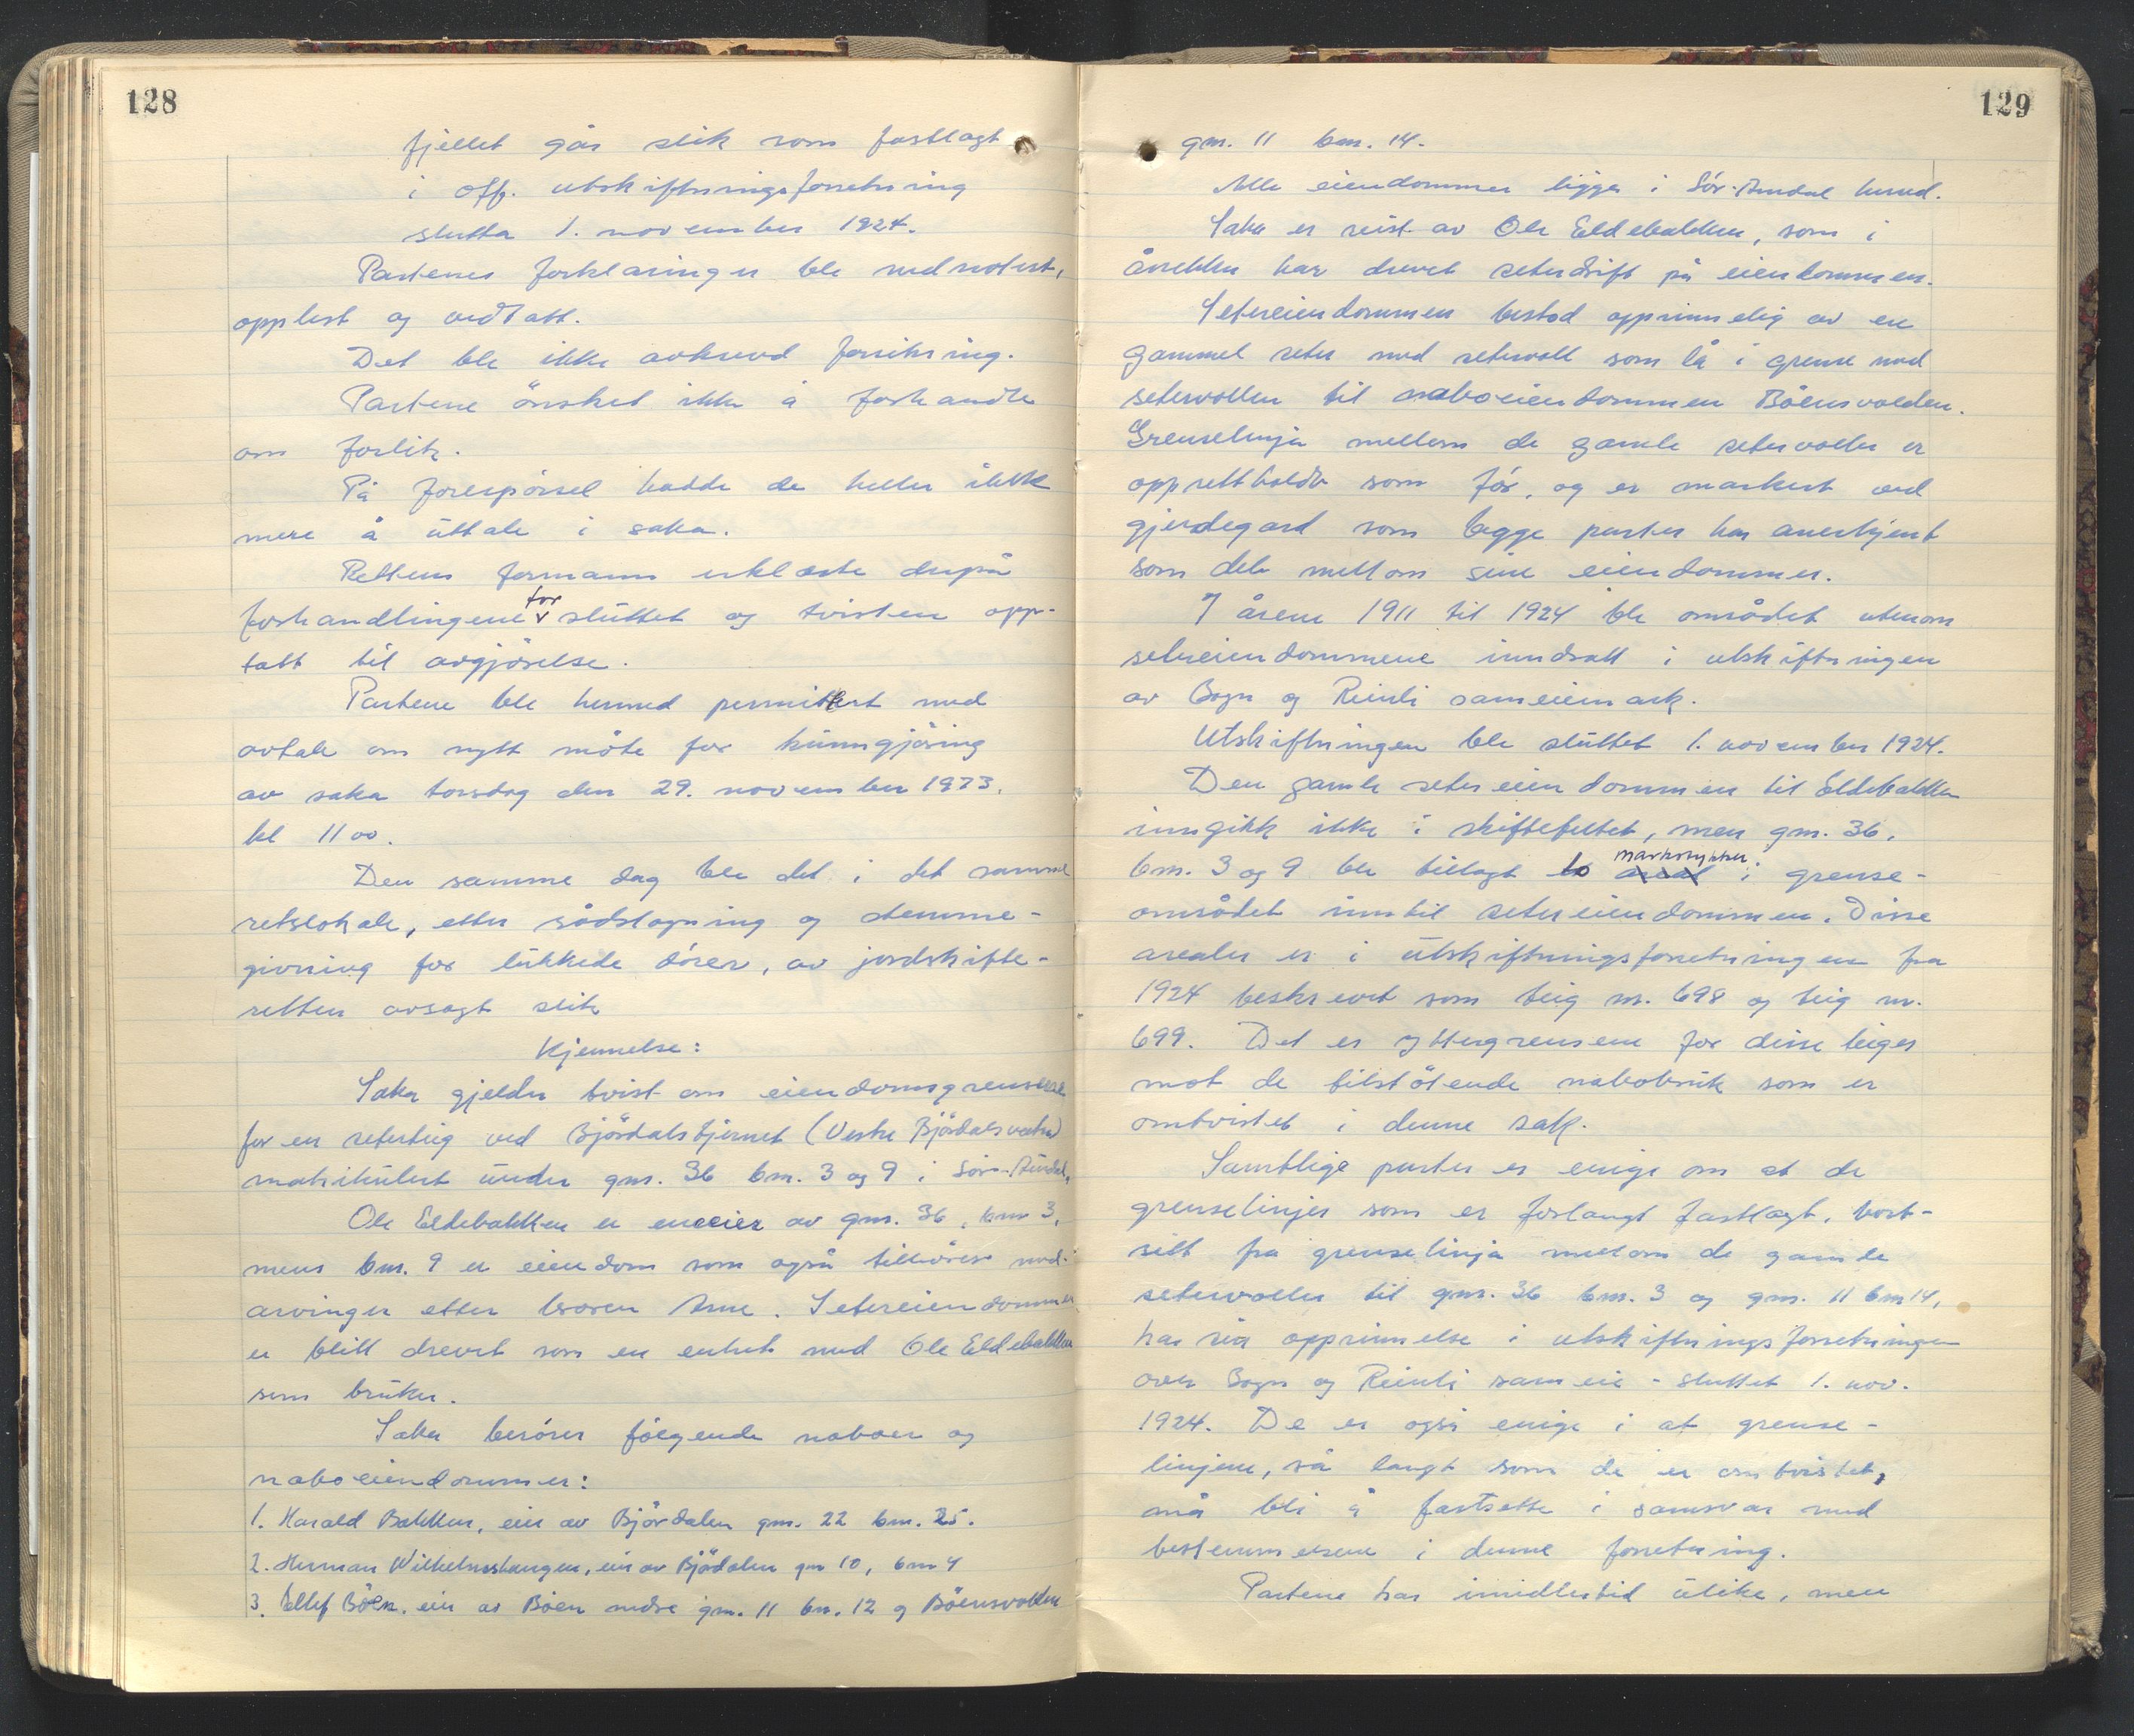 128
fjellet går slik som fastlagt
i off. utskiftningsforretning
slutta 1. november 1924.
Partenes forklaringer ble nednotert,
opplest og vedtatt.
Det ble ikke avkrevd forsikring.
Partene ønsket ikke å forhandle
om forlik.
På forespørsel hadde de heller ikke
mere å uttale i saka.
Rettens formann erklærte derpå
forhandlingene for sluttet og tvisten opp-
tatt til avgjørelse.
Partene ble hermed permittert med
avtale om nytt møte for kunngjøring
av saka torsdag den 29. november 1973.
kl 11 00.
Den samme dag ble det i det samme
retslokale, etter rådslagning og stemme-
givning for lukkede dører, av jordskifte-
retten avsagt slik
Kjennelse:
Saka gjelder tvist om eiendomsgrensene
for en seterteig ved Bjørdalstjernet (Vestre Bjørdalsvatn)
matrikulert under gnr. 36 bnr. 3 og 9 i Sør-Aurdal,
Ole Eldebakken er eneeier av gnr. 36, bnr 3,
mens bnr. 9 er eiendom som også tilhører med-
arvinger etter broren Arne. Setereiendommen
er blitt drevet som en enhet med Ole Eldebakken
som bruker.
Saka berører følgende naboer og
naboeiendommer:
1. Harald Bakken, eier av Bjørdalen gnr. 22 bnr. 25.
2. Herman Wilhelmshaugen, eier av Bjødalen gnr 10, bnr 4
3. Ellef Bøen, eier av Bøen nedre gnr. 11 bnr. 12 og Bøensvolden
129
gnr. 11 bnr. 14.
Alle eiendommer ligger i Sør-Aurdal herred.
Saka er reist av Ole Eldebakken, som i
årrekker har drevet seterdrift på eiendommen.
Setereiendommen bestod opprinnelig av en
gammel seter med setervoll som lå i grense med
setervollen til naboeiendommen Bøensvolden.
Grenselinja mellom de gamle setervoller er
opprettholdt som før, og er markert ved
gjerdegard som begge parter har anerkjent
som dele mellom sine eiendommer.
I årene 1911 til 1924 ble området utenom
setreeiendommene inndratt i utskiftningen
av Bagn og Reinli sameiemark.
Utskiftningen ble sluttet 1. november 1924.
Den gamle setereiendommen til Eldebakken
inngikk ikke i skiftefeltet, men gnr. 36,
bnr. 3 og 9 ble tillagt to markstykker i grense-
området inntil setereiendommen. Disse
arealer er i utskiftningsforretningen fra
1924 beskrevet som teig nr. 698 og teig nr.
699. Det er yttergrensene for disse teiger
mot de tilstøtende nabobruk som er
omtvistet i denne sak.
Samtlige parter er enige om at de
grenselinjer som er forlangt fastlagt, bort-
sett fra grenselinja mellom de gamle
setervoller til gnr. 36 bnr. 3 og gnr. 11 bnr 14,
har sin opprinnelse i utskiftningsforretningen
over Bagn og Reinli sameie - sluttet 1. nov.
1924. De er også enige i at grense-
linjene, så langt som de er omtvistet,
må bli å fastsette i samsvar med
bestemmelsene i denne forretning.
Partene har imidlertid ulike, men